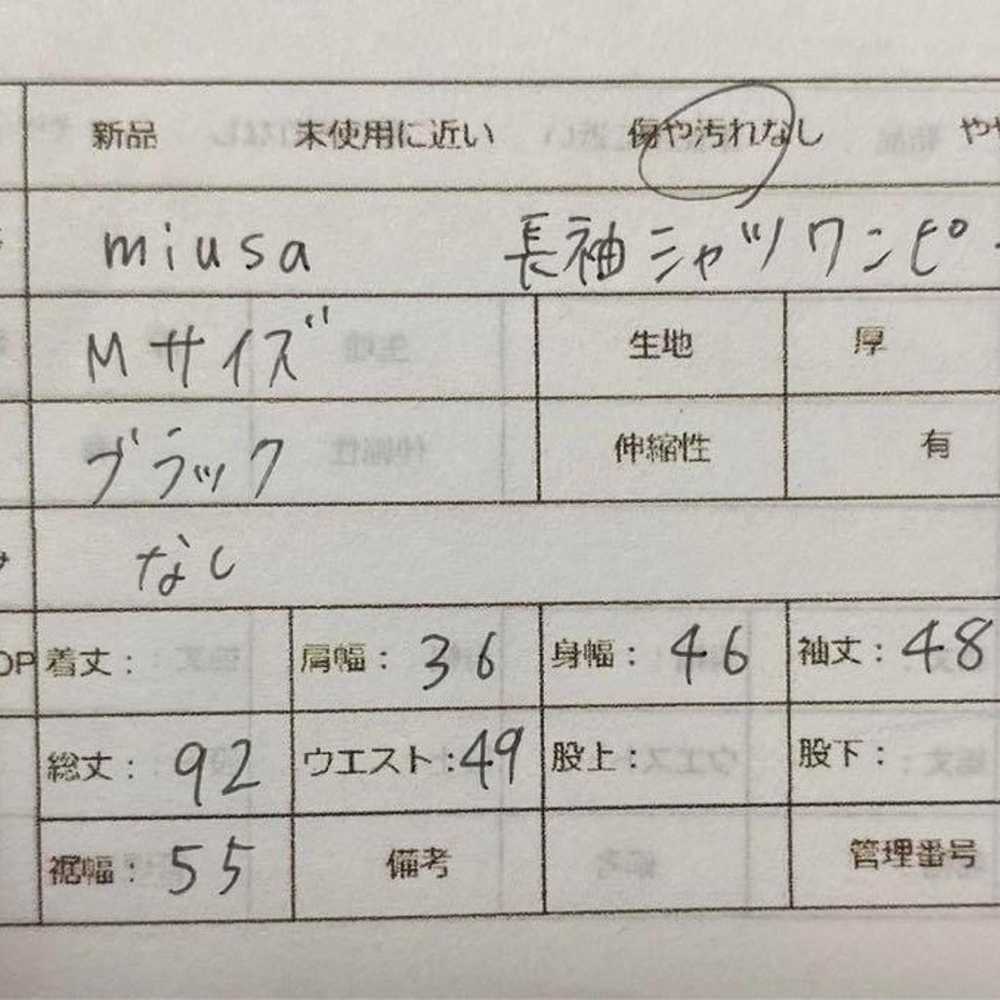 新品 未使用に近い 傷や汚れなし やや
miusa 長袖シャツワンピー
Mサイズ 生地 厚
ブラック 伸縮性 有
なし
OP 着丈: 肩幅: 36 身幅: 46 袖丈: 48
総丈: 92 ウエスト: 49 股上: 股下:
裾幅: 55 備考 管理番号